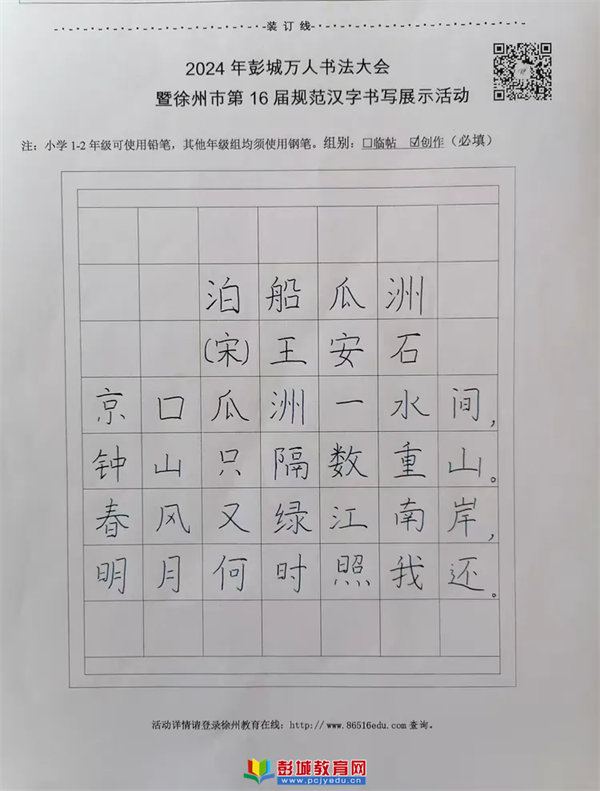 装 订 线
2024 年彭城万人书法大会
暨徐州市第 16 届规范汉字书写展示活动
注：小学 1-2 年级可使用铅笔，其他年级组均须使用钢笔。组别：☐临帖 ☑创作（必填）
泊船瓜洲
(宋)王安石
京口瓜洲一水间，
钟山只隔数重山。
春风又绿江南岸，
明月何时照我还。
活动详情请登录徐州教育在线：http://www.86516edu.com 查询。
彭城教育网
www.pcjyedu.com